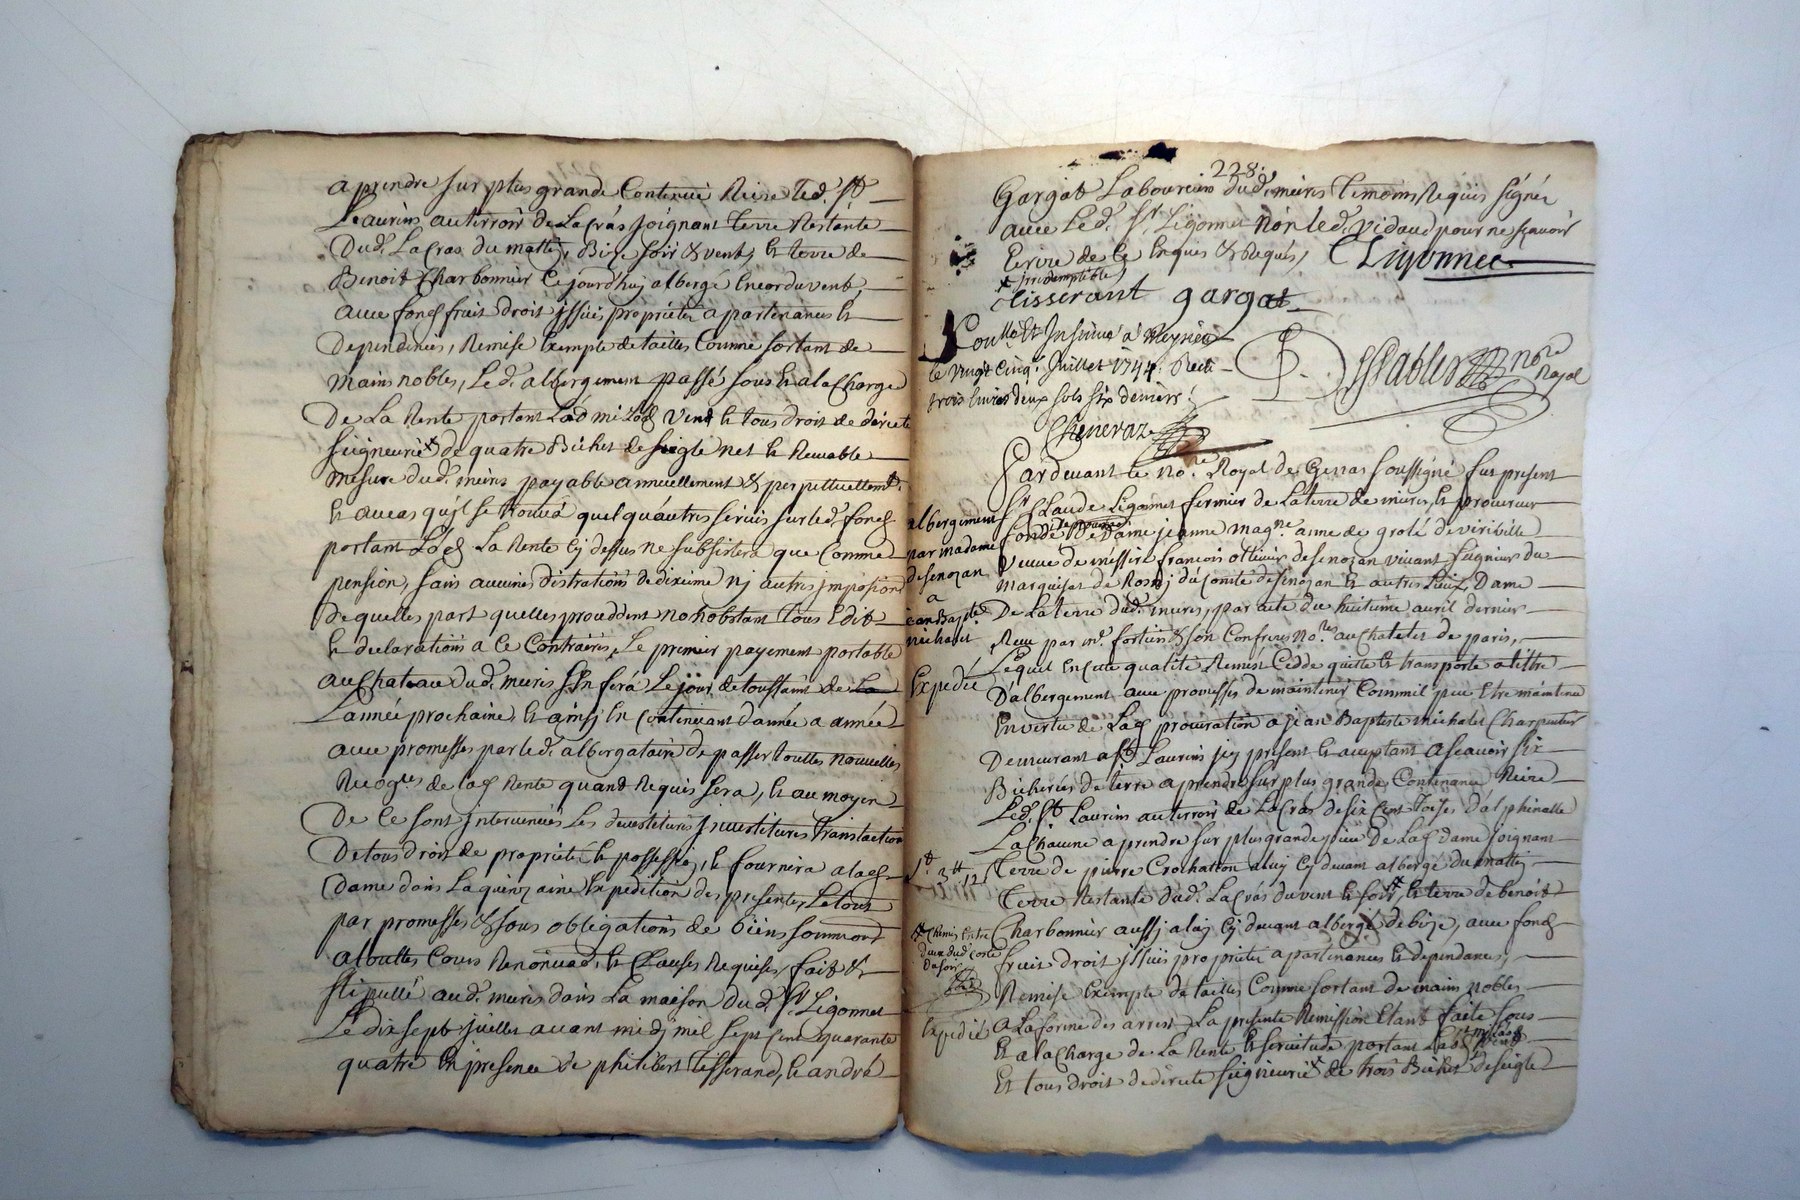 a prendre sur plus grande Contenue Reire led. St
Laurins au terroir de La Cras joignant terre Restante
Dud. La Cras du mattin, Bize soir & vent, et terre de
Benoit Charbonnier Ce jourd'huy albergé Encor du vent,
avec fond fruit droit issues, proprietés apartenances et
Dependences, Remise Exempte de tailles Comme sortant de
mains nobles, Le d. albergement passé sous et a la Charge
De La Rente portant Lad mi Lod Vend et tous droit de directe
seigneurie de quatre Bichet de seigle net et Recevable
mesure dud. meiris payable annuellement & perpettuellemt.
Et au cas qu'il se trouva quel qu'autres servis sur led. fond
portant Lod La Rente Cy dessus ne subsistera que Comme
pension, sans aucunes distractions de dixieme nj autres impositions
De quelles part quelles procedent nonobstant tous Edit
et declarations a Ce Contraires, Le premier payement portable
au Chateau Dud. meiris S'En fera Le jour de toussaint de La
L'année prochaine, et ainsy En Continuant d'année a année
avec promesses par led. albergataire de passer touttes nouvelles
Recogres. de lad Rente quand Requis sera, et au moyen
De Ce sont jntervenües Les devestitures jnvestitures translaction
De tous droit de proprieté et possession, et fournira a lad
Dame dans La quinzaine Expedition des presentes, Le tout
par promesses & sous obligations de biens soumis
a touttes Cours Renonciad. et Clauses Requises, fait &
stipullé aud. meiris dans La maison dud. Sr. Ligonnet
Le dix sept juillet avant midy mil sept cent quarante
quatre En presence de philibert tisserand, et andré
228.
Gargat Laboureur dud. meiris temoins Requis signés
avec Led. Sr. Ligonnet non led. vidaud pour ne sçavoir
Ecrire de Ce Enquis & Requis,
CLigonnet
x irredemptible
tisserant gargat
Conllé Et Insinué à Meyzieu
le vingt cinqe. Juillet 1744. Recu
trois livres deux sols six deniers
Chenevaz
Dessables Nore Royal
Pardevant le nore. Royal de Genas soussigné fut present
Sr. Claude Ligonnet fermier de La terre de meiris, et procureur
fondé De Dame jeanne magne. anne de grolé de viriville
Veuve de messire françois ollivier de senozan vivant seigneur du
marquisat de Rosny du Comté de senozan et autres Lieux, Dame
De La terre dud. meiris, par acte du huitieme avril dernier
Receu par me. fortier & son Confrere nores. au Chatelet de paris,
Lequel En cette qualité Remest Cedde quitte et transporte a tittre
D'albergement avec promesses de maintenir Comm'il peu Etre maintenu
En vertu de Lad procuration a jean Baptiste michalet Charpentier
Demeurant a St Laurins jcy present et acceptant a scavoir six
Bicherées de terre a prendre sur plus grande Contenance Reire
Led. St Laurins au terroir de La Cras de six Cent Toises Dalphinalle
La Chacune a prendre sur plus grande piece de Lad dame joignant
Terre de pierre Crochatton a luy Cy devant albergé du mattin,
Terre Restante dud. La Cras du vent et soir, et terre de benoit
Charbonnier aussj a luy Cy devant albergé de bize, avec fond
fruit droit issues proprietés apartenances et dependances,
Remise Exempte de tailles Comme sortant de mains nobles
a la forme des arrest, La presente Remission Etant faite sous
Et a la Charge de La Rente et servitude portant Lad mi Lod Vend
Et tous droit de directe seigneurie de trois Bichet de seigle
albergement
par madame
de senozan
a
jean Bapte.
michalet
Expedié
Expedié